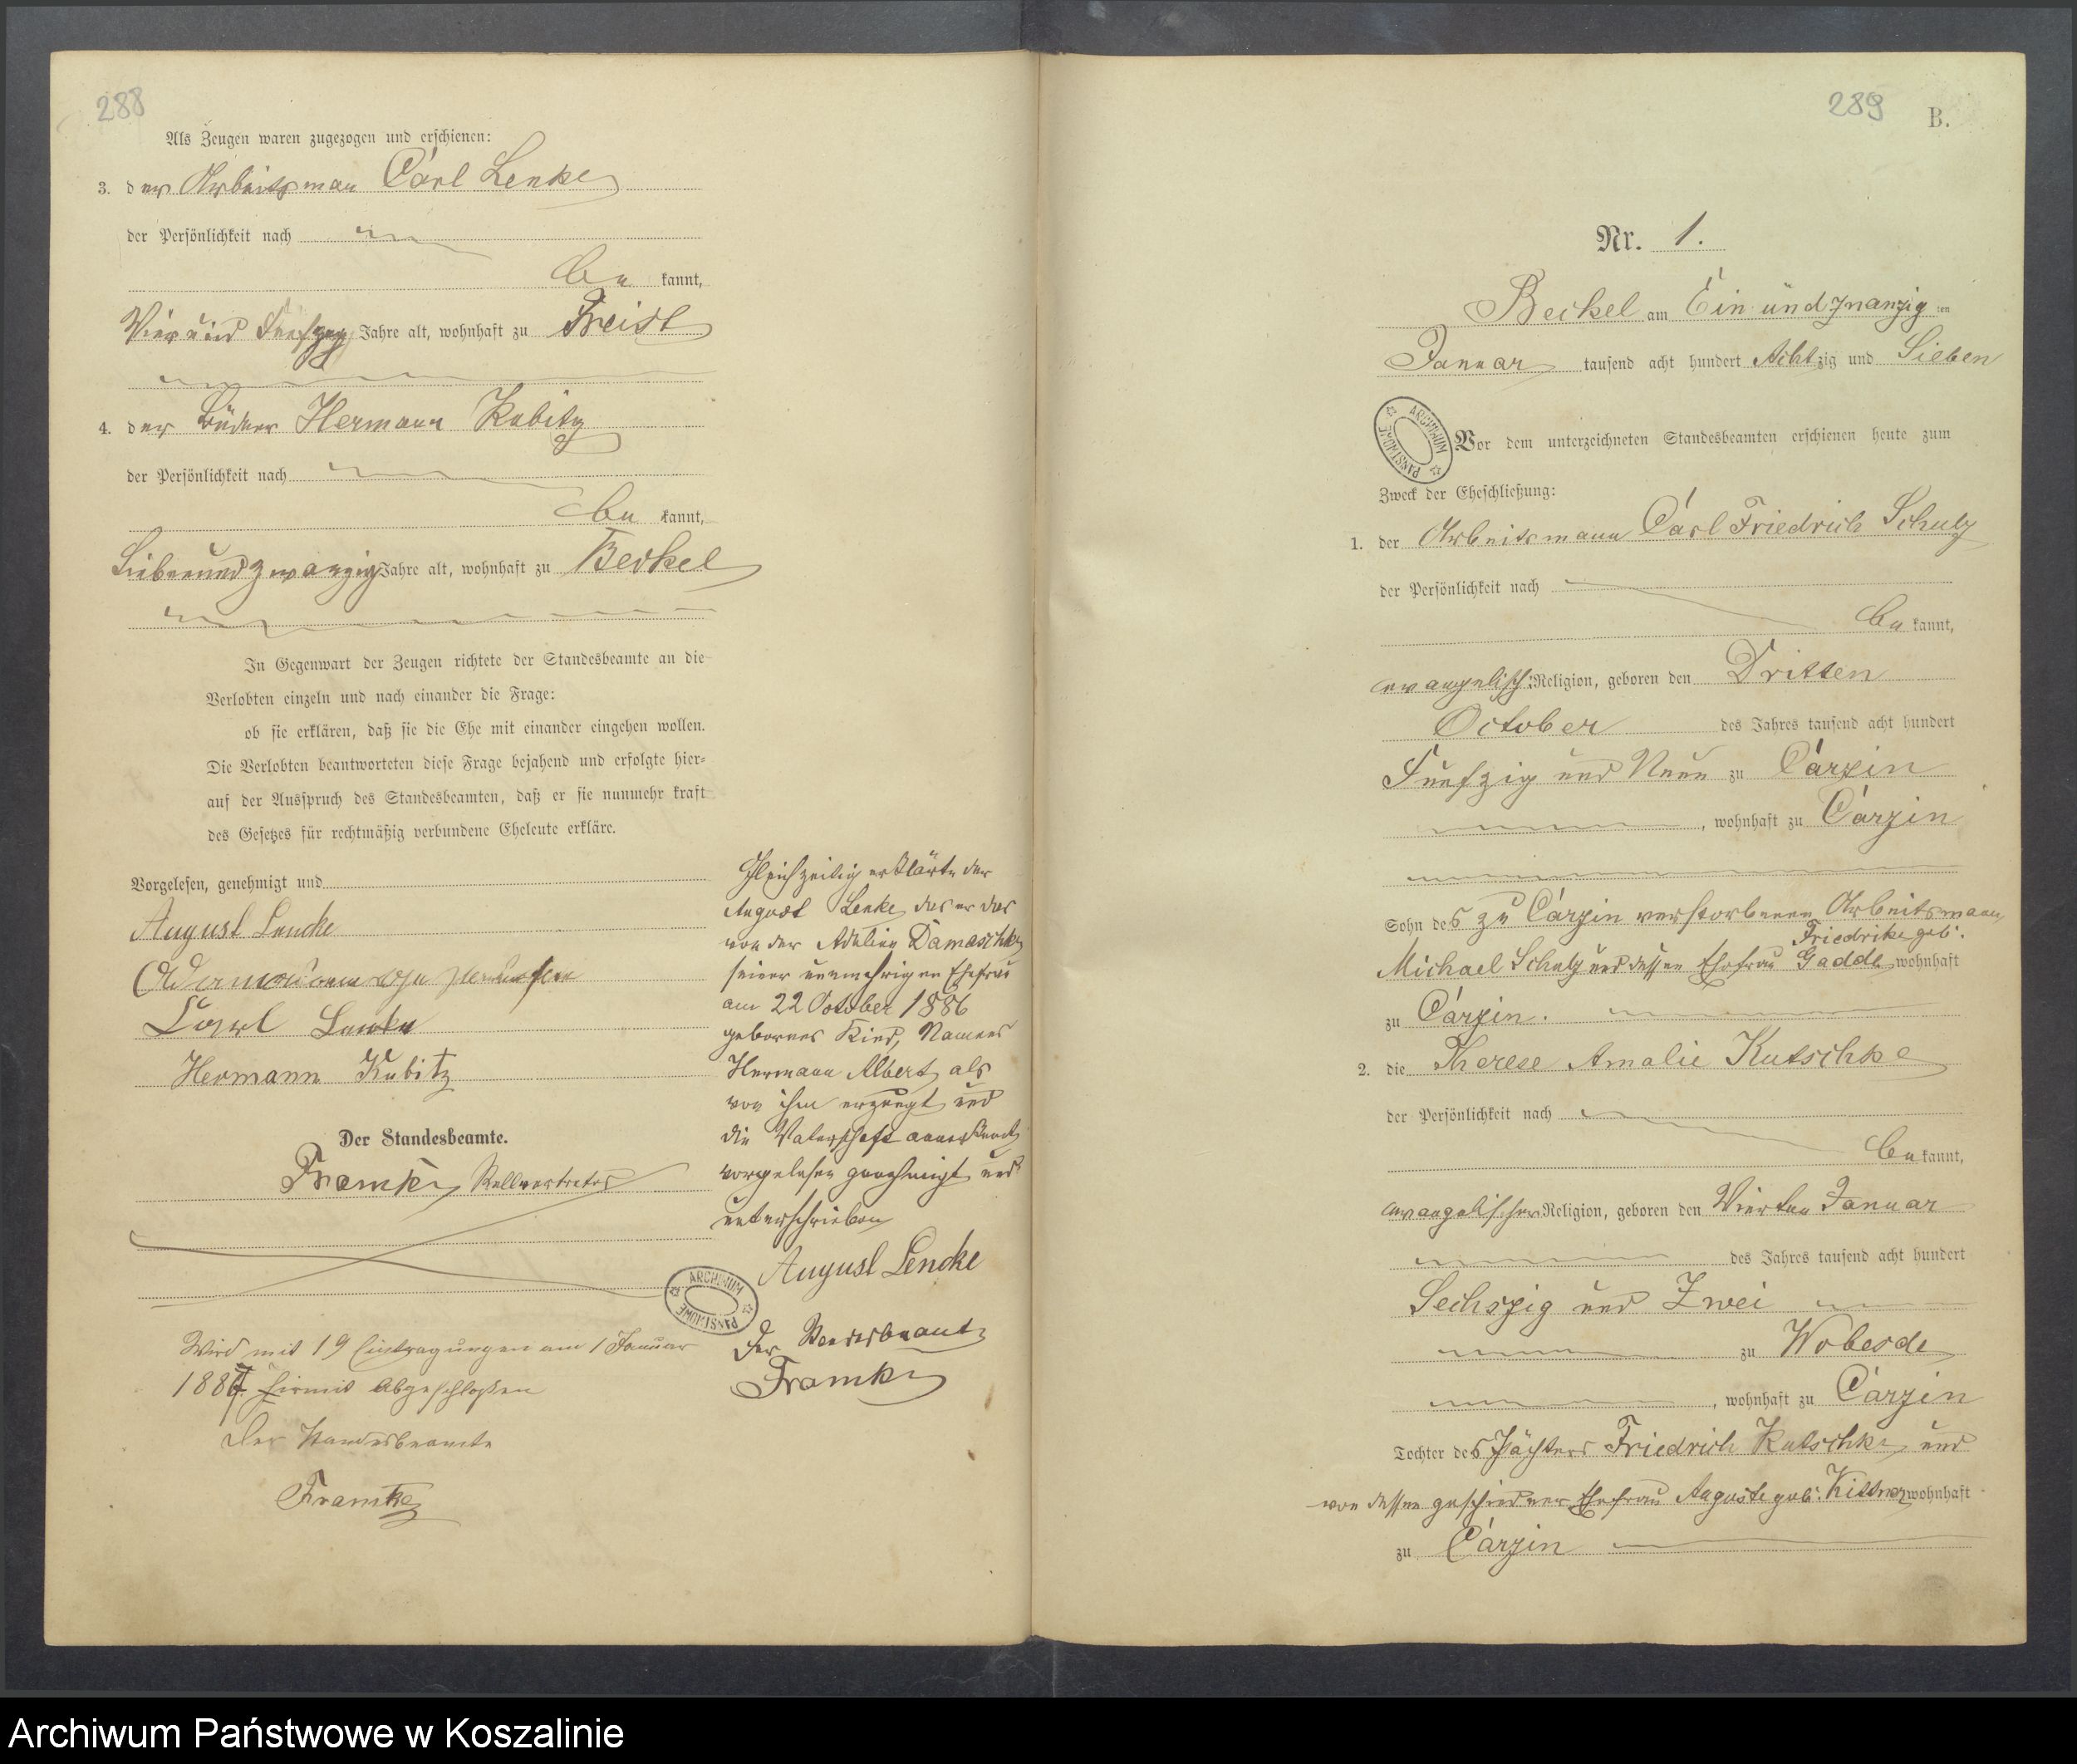 288
Als Zeugen waren zugezogen und erschienen:
3. der Arbeitsman Carl Lenke
der Persönlichkeit nach
be kannt,
Vier und Fünfzig Jahre alt, wohnhaft zu Freist
4. der Büdner Hermann Kubitz
der Persönlichkeit nach
be kannt,
Siebenundzwanzig Jahre alt, wohnhaft zu Beckel
In Gegenwart der Zeugen richtete der Standesbeamte an die
Verlobten einzeln und nach einander die Frage:
ob sie erklären, daß sie die Ehe mit einander eingehen wollen.
Die Verlobten beantworteten diese Frage bejahend und erfolgte hier-
auf der Ausspruch des Standesbeamten, daß er sie nunmehr kraft
des Gesetzes für rechtmäßig verbundene Eheleute erkläre.
Vorgelesen, genehmigt und
August Lencke
Carl Lencke
Hermann Kubitz
Der Standesbeamte.
Framke Stellvertreter
Wird mit 19 Eintragungen am 1 Januar
1887 hiermit Abgeschloßen
Der Standesbeamte
Framke
Gleichzeitig erklärte der
August Lenke, das er das
von der Adeline Damaschke
seiner nunmehrigen Ehefrau
am 22 October 1886
geborenes Kind, Namens
Hermann Albert, als
von ihm erzeugt und
die Vaterschaft anerkennt,
vorgelesen genehmigt und
unterschrieben
August Lencke
Der Standesbeamte
Framke
ARCHIWUM PAŃSTWOWE
289
B.
Nr. 1.
Beckel am Ein und zwanzig ten
Januar tausend acht hundert Achtzig und Sieben
ARCHIWUM PAŃSTWOWE
Vor dem unterzeichneten Standesbeamten erschienen heute zum
Zweck der Eheschließung:
1. der Arbeitsmann Carl Friedrich Schulz
der Persönlichkeit nach
be kannt,
evangelisch. Religion, geboren den Dritten
October des Jahres tausend acht hundert
Fünfzig und Neun zu Carzin
, wohnhaft zu Carzin
Sohn des zu Carzin verstorbenen Arbeitsmann
Michael Schulz und dessen Ehefrau Friedrike geb. Gadde wohnhaft
zu Carzin.
2. die Therese Amalie Kutschke
der Persönlichkeit nach
be kannt,
evangelischer Religion, geboren den Vierten Januar
des Jahres tausend acht hundert
Sechszig und Zwei
zu Wobesde
, wohnhaft zu Carzin
Tochter des Pächters Friedrich Kutschke und
von dessen geschiedener Ehefrau Auguste geb. wohnhaft
zu Carzin
Archiwum Państwowe w Koszalinie